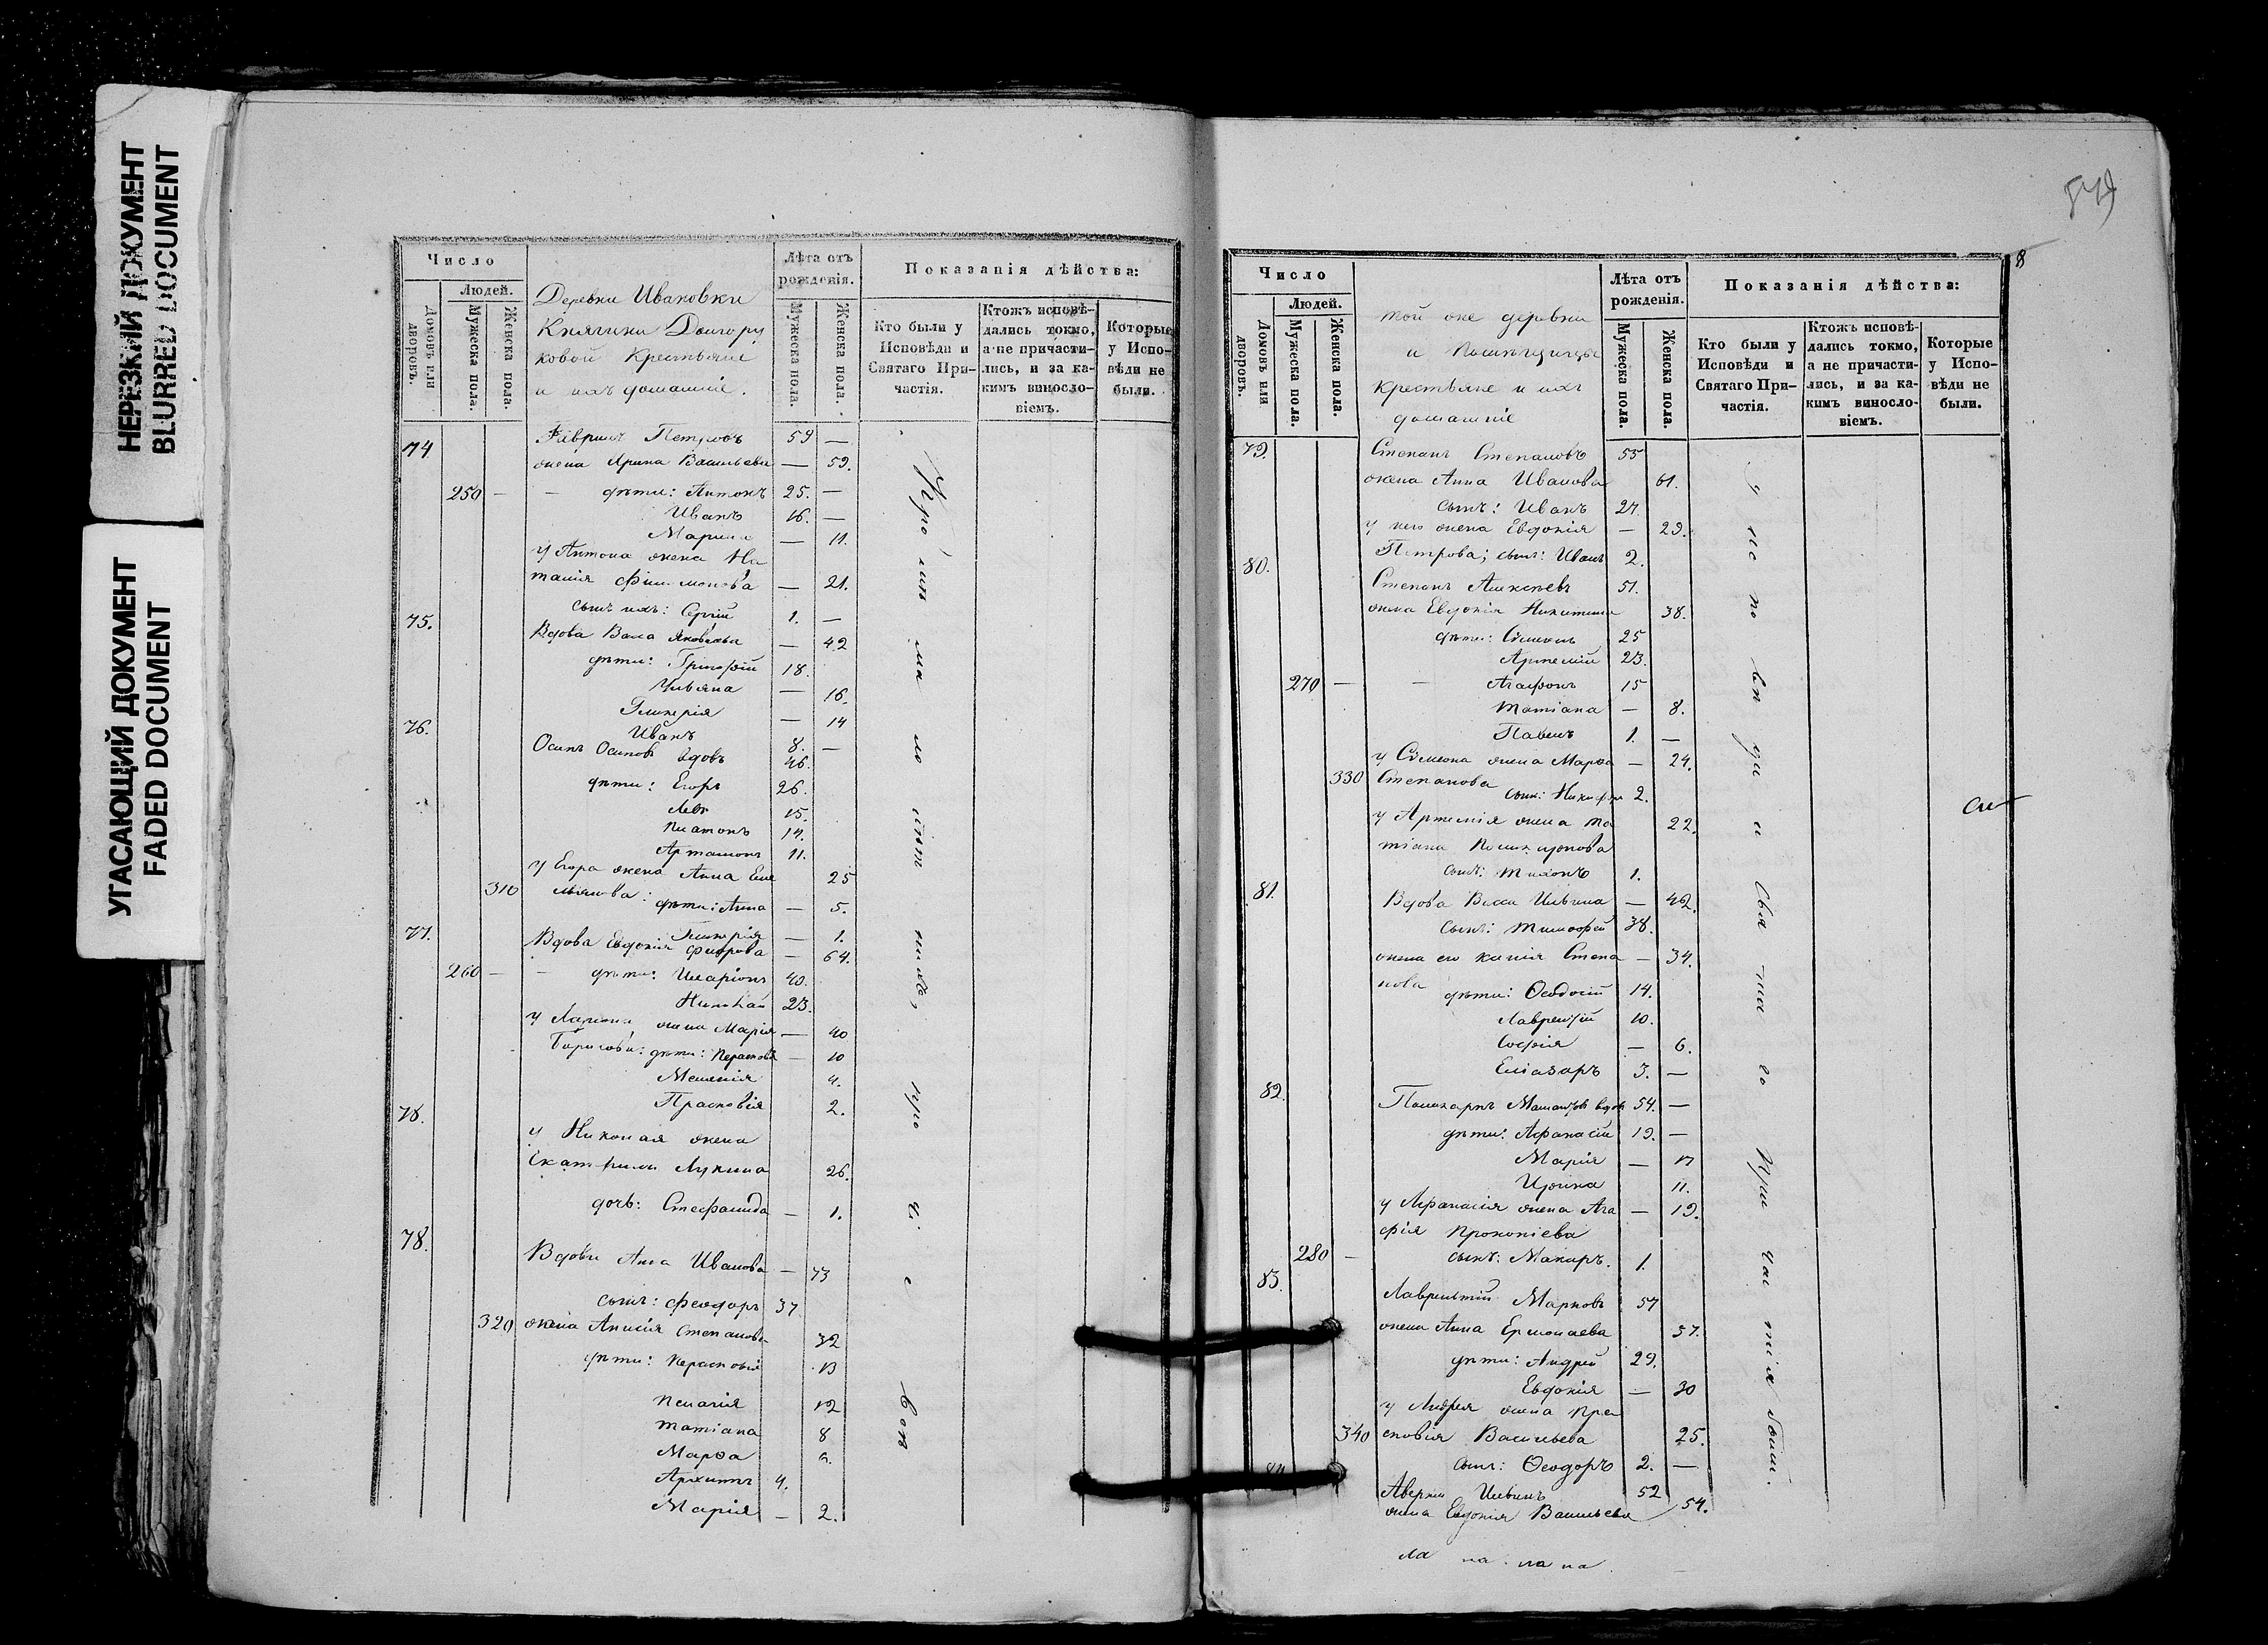 НЕРЕЗКИЙ ДОКУМЕНТ
BLURRED DOCUMENT
УГАСАЮЩИЙ ДОКУМЕНТ
FADED DOCUMENT
Число
Людей.
Домовъ или дворовъ.
Мужеска пола.
Женска пола.
Деревни Ивановки
Княгини Долгору
ковой Крестьяне
и ихъ домашніе.
Лѣта отъ рожденія.
Мужеска пола.
Женска пола.
Показанія дѣйства:
Кто были у Исповѣди и Святаго При-частія.
Ктожъ исповѣ-дались токмо, а не причасти-лись, и за ка-кимъ винословіемъ.
Которые у Испо-вѣди не были.
74 Петровъ 59 —
жена Ирина Васильева — 59.
250 — — дѣти: Антонъ 25. —
Иванъ 16. —
Марина — 11.
у Антона жена На
талія Филимонова — 21.
сынъ ихъ: Сергій 1. —
75. Вдова Васса Яковлева — 42
дѣти: Григорій 18.
Ульяна — 16.
Гликерія — 14
Иванъ 8. —
76. Осипъ Осиповъ вдовъ 46.
дѣти: Егоръ 26.
Левъ 15.
Платонъ 14.
Артамонъ 11.
у Егора жена Анна Еме 25
310 льянова: дѣти: Анна — 5.
Гликерія — 1.
77. Вдова Евдокія Фирова — 64.
260 — — дѣти: Иларіонъ 40.
Николай 23.
у Ларіона жена Марія — 40
Борисова: дѣти: Параскевія — 10
Меланія 4.
Прасковія 2.
78.
у Николая жена
Екатерина Лукина 26.
дочь: Стефанида — 1.
78. Вдова Анна Иванова — 73
сынъ: Феодоръ 37
320 жена Анисія Степанова 32
дѣти: Парасковія 13
Пелагія 12
Татіана 8
Марѳа 6.
Архипъ 4.
Марія — 2.
549
8
Число
Людей.
Домовъ или дворовъ.
Мужеска пола.
Женска пола.
той же деревни
и помѣщицы
крестьяне и ихъ
домашніе
Лѣта отъ рожденія.
Мужеска пола.
Женска пола.
Показанія дѣйства:
Кто были у Исповѣди и Святаго При-частія.
Ктожъ исповѣ-дались токмо, а не причасти-лись, и за ка-кимъ винословіемъ.
Которые у Испо-вѣди не были.
79. Степанъ Степановъ 55
жена Анна Иванова 61.
сынъ: Иванъ 27.
у него жена Евдокія — 29.
Петрова; сынъ: Иванъ 2.
80. Степанъ Алексѣевъ 51.
жена Евдокія Никитина 38.
дѣти: Сѵмеонъ 25
Артемій 23.
270 — — Агафонъ 15
Татіана — 8.
Павелъ 1. —
у Сѵмеона жена Марѳа — 24.
330 Степанова сынъ: Никифоръ 2.
у Артемія жена Та 22.
тіана
сынъ: Тихонъ 1.
81. Вдова Васса Ильина — 42.
сынъ: Тимофей 38.
жена его Ксенія Степа — 34.
нова дѣти: Ѳеодосій 14.
Лаврентій 10.
Софія — 6.
Еліазаръ 3. —
82. Поликарпъ вдовъ 54. —
дѣти: Афанасій 19. —
Марія — 17
Ирина 11.
у Афанасія жена Ага — 19.
фія Прокопіева
280 — сынъ: Макаръ. 1.
83. Лаврентій Марковъ 57
жена Анна Ермолаева 57.
дѣти: Андрей 29.
Евдокія — 30
у Андрея жена Пра
340 сковія Васильева 25.
сынъ: Ѳеодоръ 2. —
84. Аверкій Ильинъ 52
жена Евдокія Васильева 54.
у исповѣди и Святаго Причастія были.